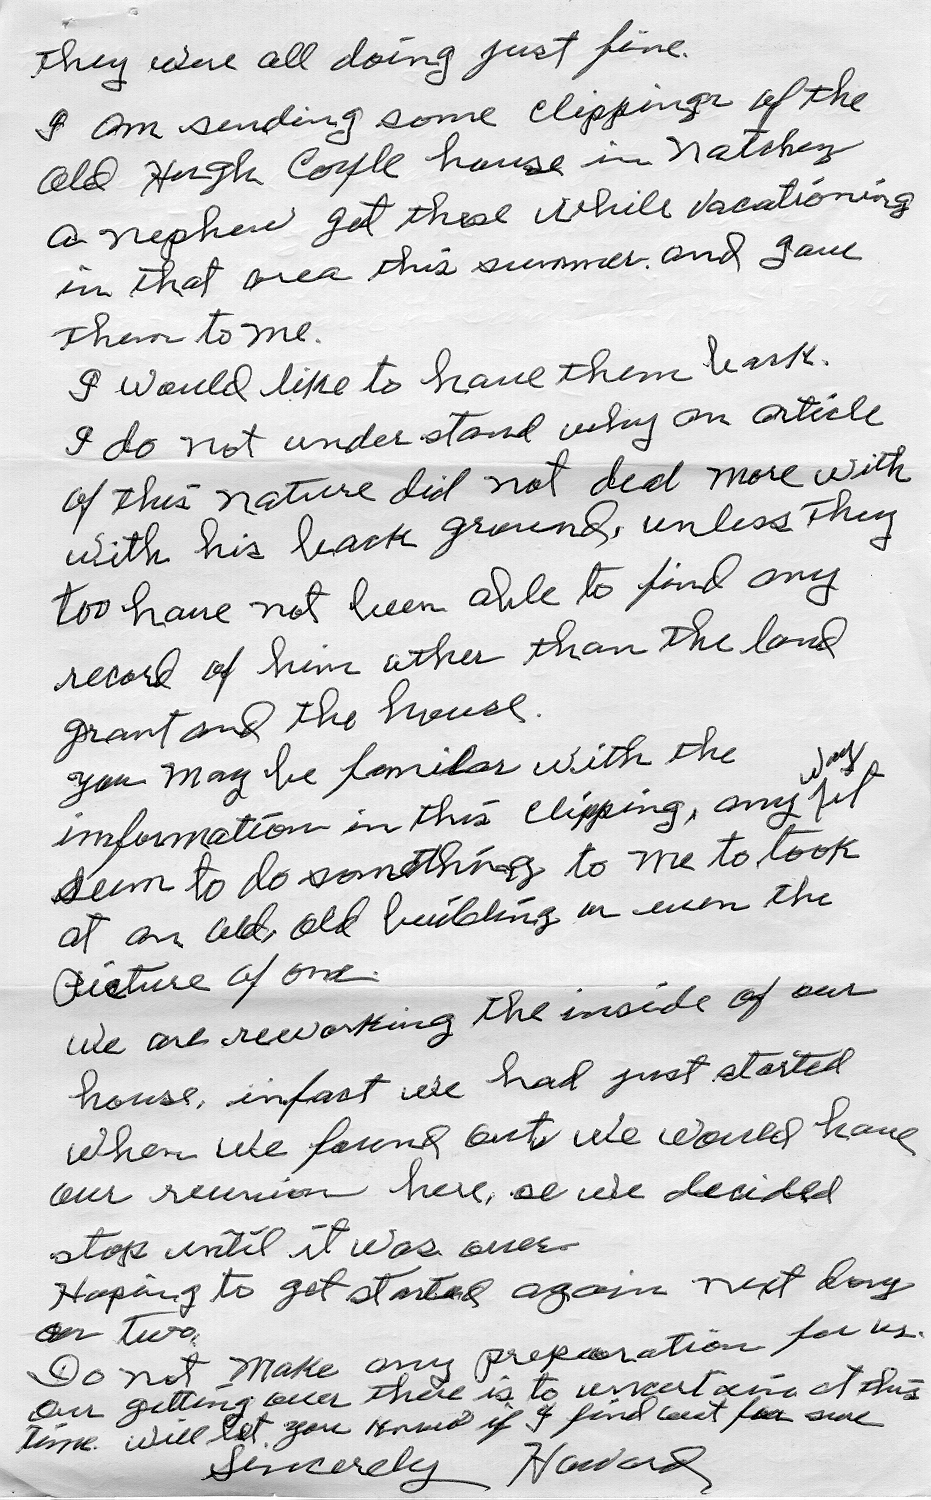 They were all doing just fine.
I am sending some clippings of the
old Hugh Coyle house in Natchez
a nephew got these while vacationing
in that area this summer. and gave
them to me.
I would like to have them back.
I do not under stand why an article
of this nature did not deal more with
with his back ground, unless they
too have not been able to find any
record of him other than the land
grant and the house.
you may be familar with the
imformation in this clipping, any way it
seem to do something to me to look
at an old, old building or even the
picture of one.
we are reworking the inside of our
house, infast we had just started
when we found out, we would have
our reunion here, so we decided
stop until it was over
Hoping to get started again next day
or two.
Do not make any preparation for us.
our getting over there is to uncertain at this
time. will let you know if I find out for sure
Sincerely Howard